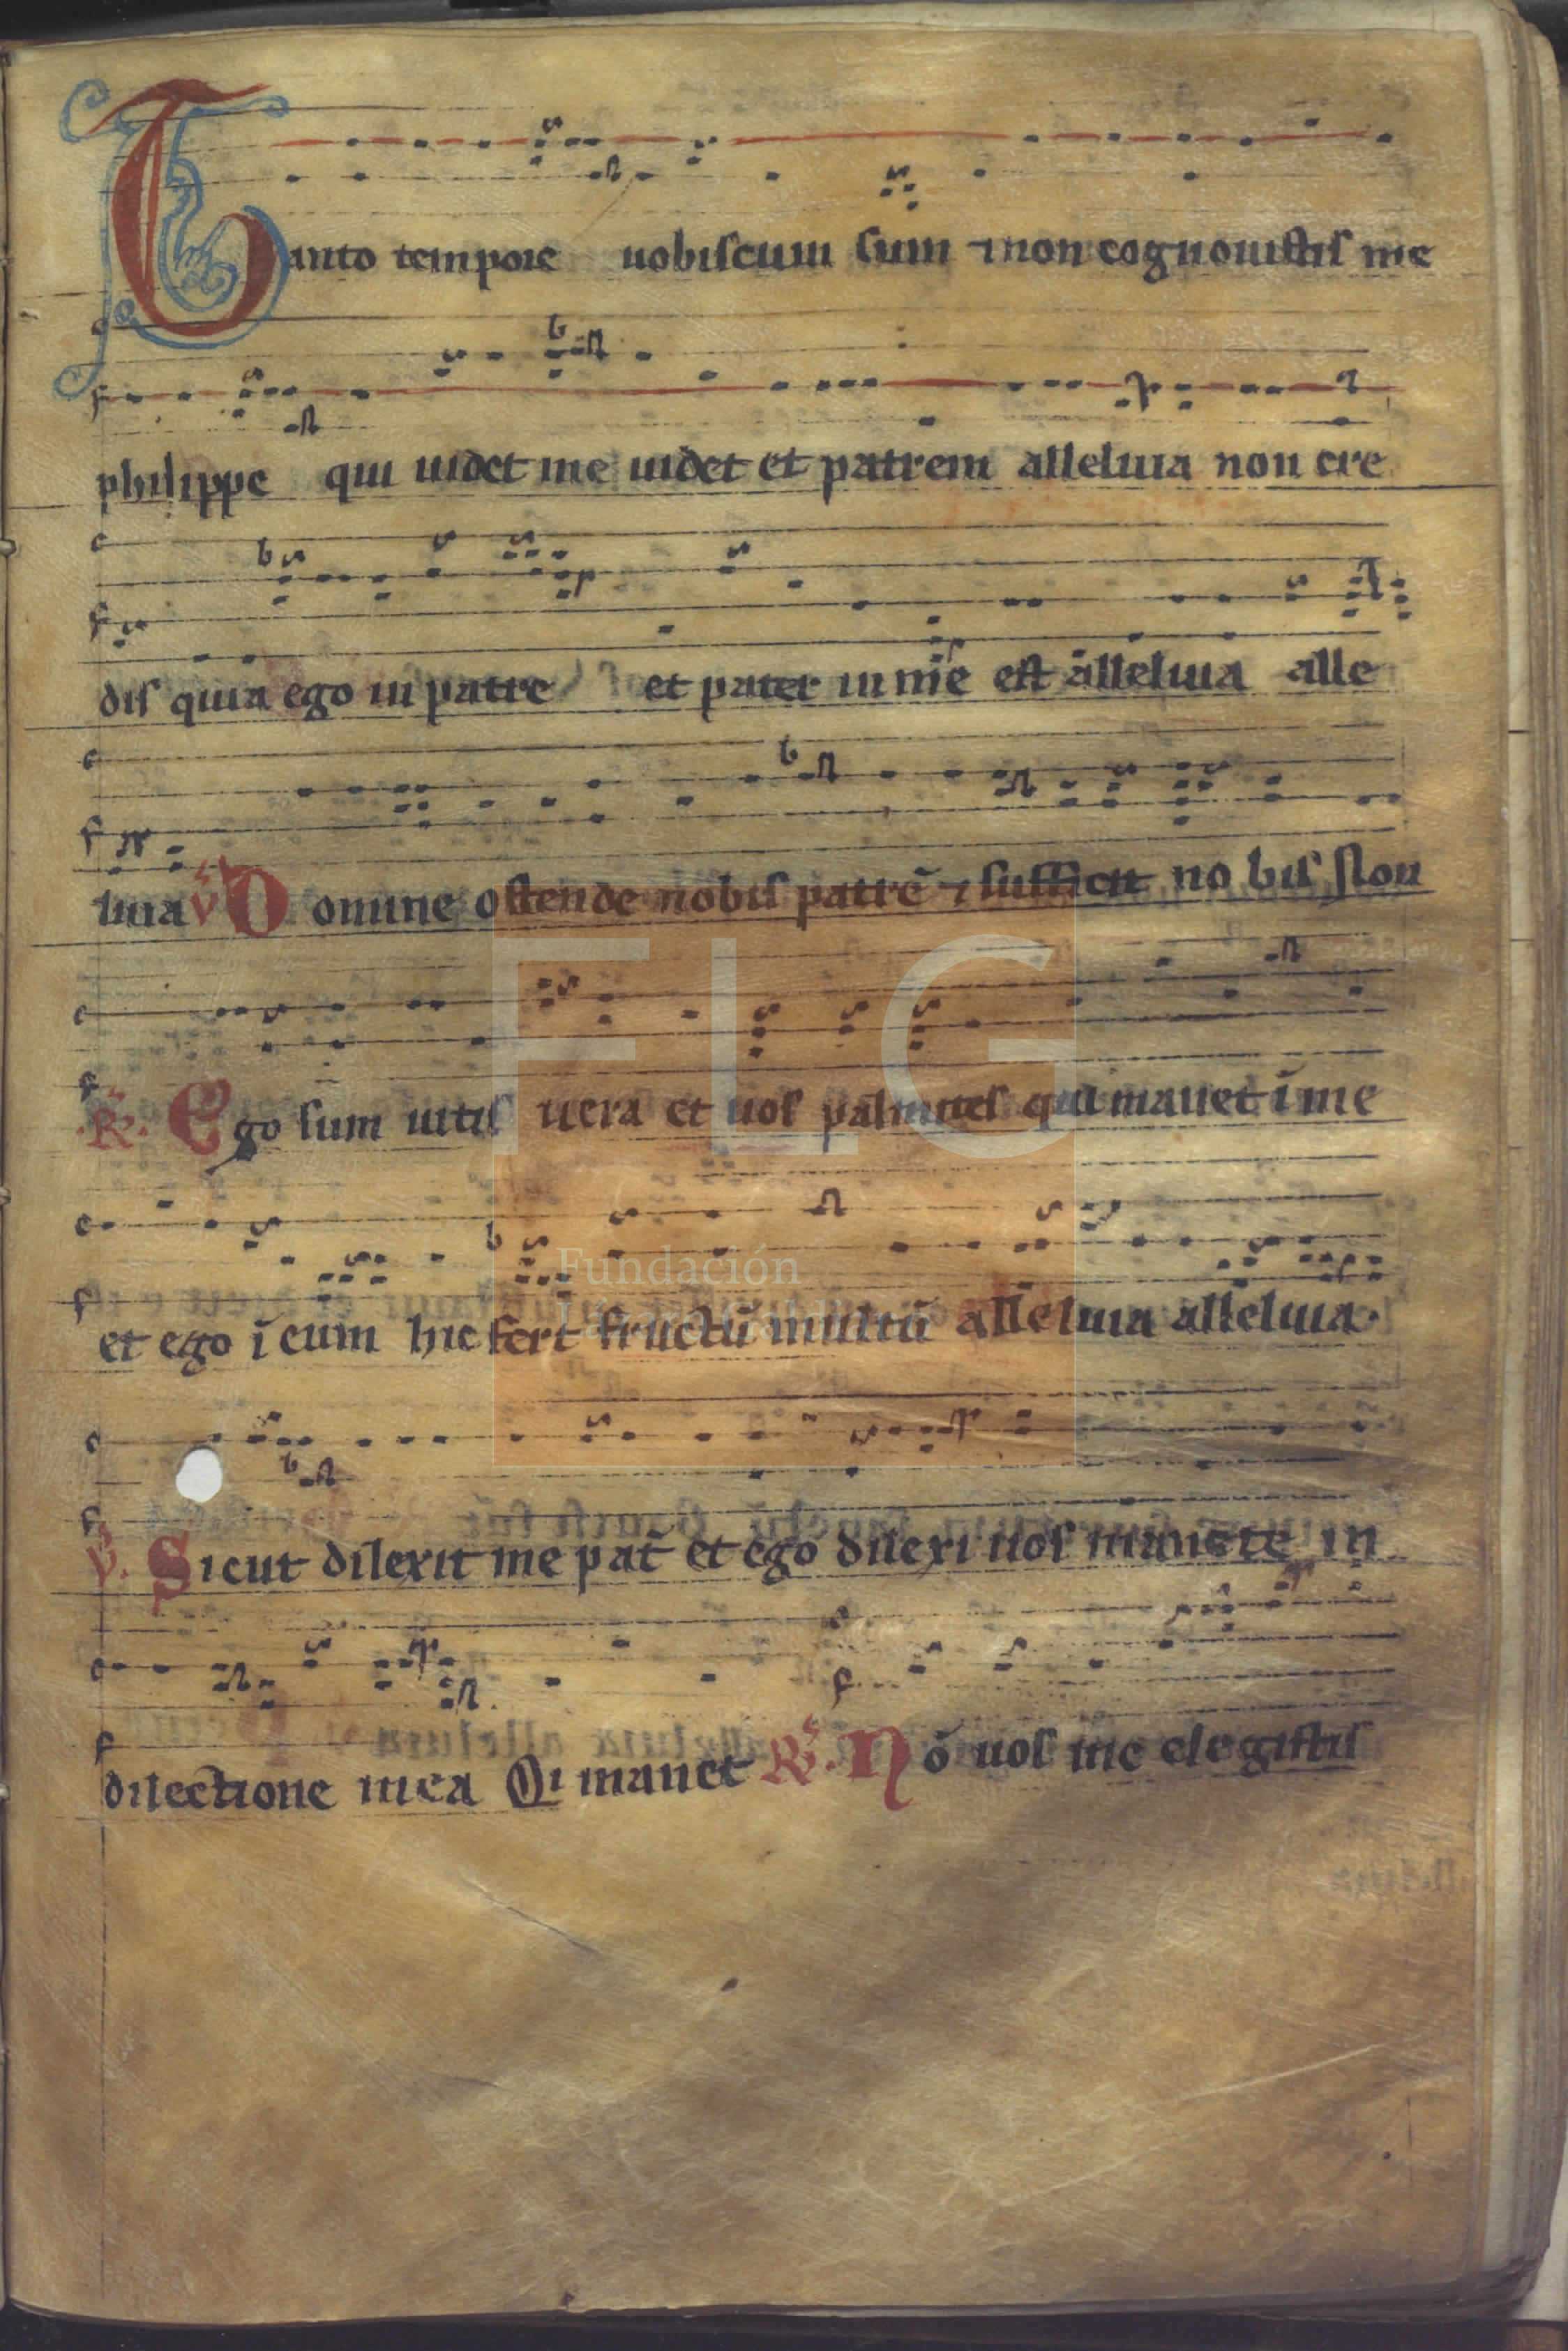 Tanto tempore uobiscum sum ⁊ non cognouistis me
philippe qui uidet me uidet et patrem alleluia non cre
dis quia ego in patre et pater in me est alleluia alle
luia V Domine ostende nobis patrē ⁊ sufficit nobis Non
R. Ego sum uitis uera et uos palmites qui manet ī me
et ego ī eum hic fert fructū multū alleluia alleluia.
V. Sicut dilexit me pat̄ et ego dilexi uos manete in
dilectione mea Qi manet R. Nō uos me elegistis
FLG
Fundación